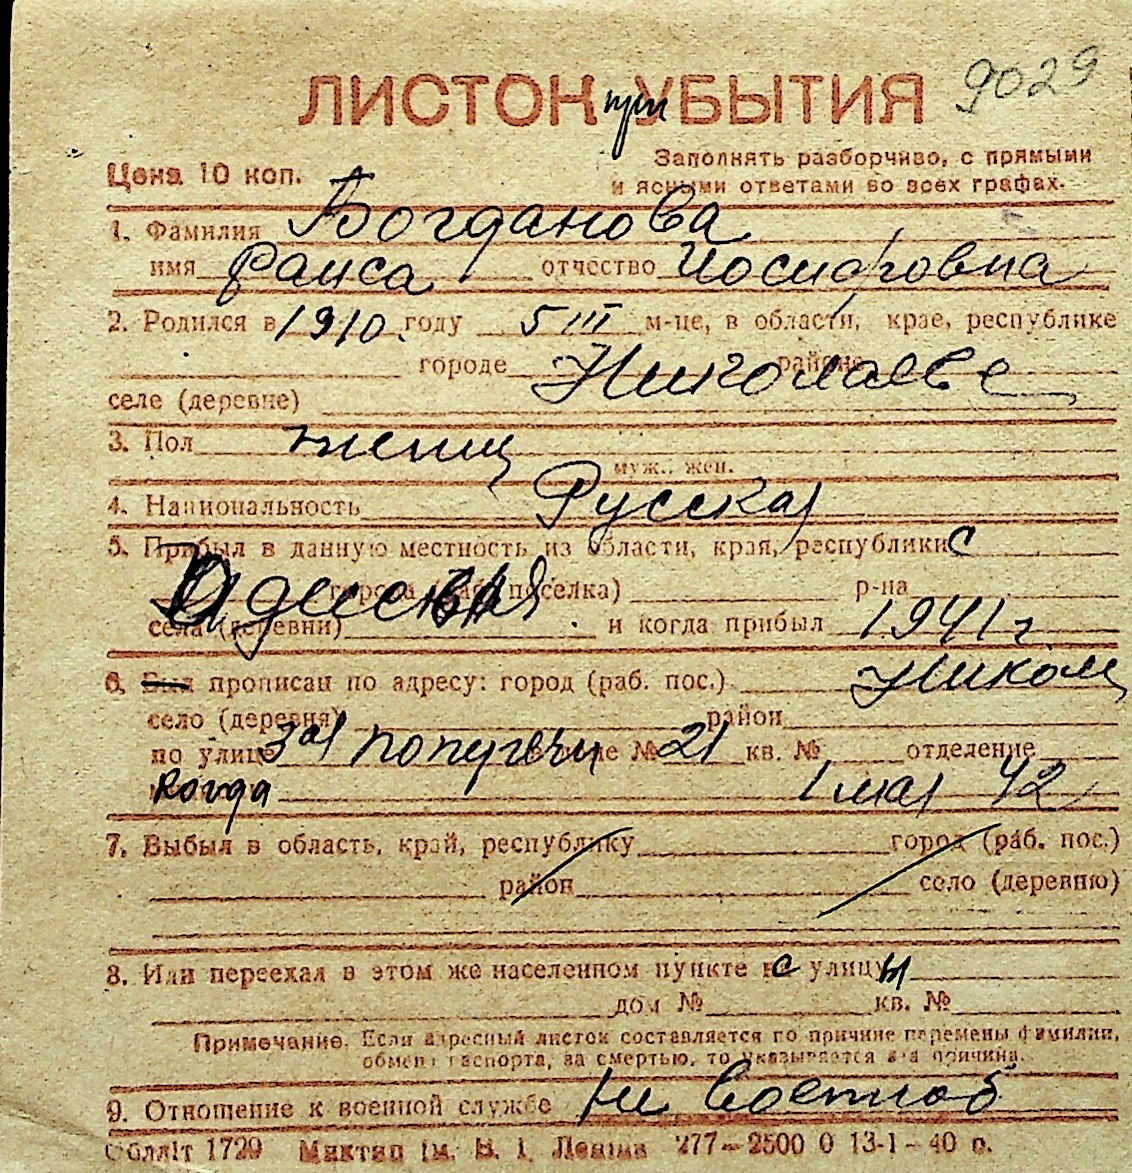 ЛИСТОК при УБЫТИЯ 9029
Цена 10 коп.
Заполнять разборчиво, с прямыми
и ясными ответами во всех графах.
1. Фамилия Богданова
имя Раиса отчество Иосифовна
2. Родился в 1910. году 5 III м-це, в области, крае, республике
городе Николаеве районе
селе (деревне)
3. Пол женщ
муж., жен.
4. Национальность Русская
5. Прибыл в данную местность из области, края, республики с
города (раб. поселка) р-на
села (деревни) и когда прибыл 1941 г
6. Был прописан по адресу: город (раб. пос.) Никол
село (деревня) район
по улице 3ая попуречн № 21 кв. № отделение
Когда 1 мая 42
7. Выбыл в область, край, республику город (раб. пос.)
район село (деревню)
8. Или переехал в этом же населенном пункте с улицы
дом № кв. №
Примечание. Если адресный листок составляется по причине перемены фамилии,
обмена паспорта, за смертью, то указывается эта причина.
9. Отношение к военной службе не военноб
Обллiт 1729 Миктип iм. В. I. Ленiна 277—2500 0 13-1-40 р.